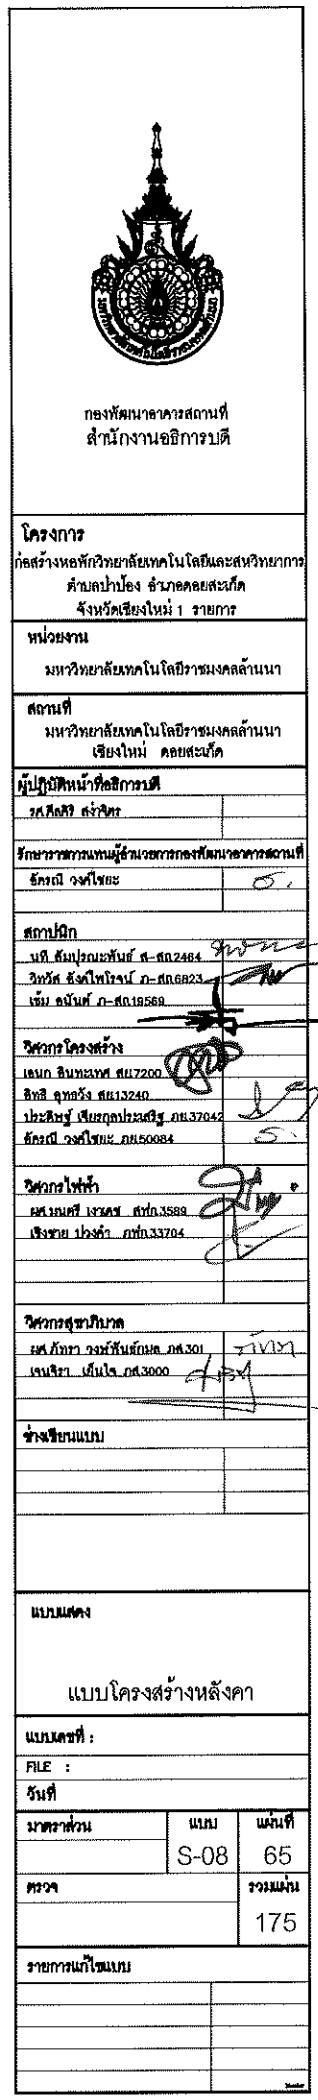 กองพัฒนาอาคารสถานที่
สำนักงานอธิการบดี
โครงการ
ก่อสร้างหอพักวิทยาลัยเทคโนโลยีและสหวิทยาการ
ตำบลป่าป้อง อำเภอดอยสะเก็ด
จังหวัดเชียงใหม่ 1 รายการ
หน่วยงาน
มหาวิทยาลัยเทคโนโลยีราชมงคลล้านนา
สถานที่
มหาวิทยาลัยเทคโนโลยีราชมงคลล้านนา
เชียงใหม่ ดอยสะเก็ด
ผู้ปฏิบัติหน้าที่อธิการบดี
รศ.ศีลศิริ สง่าจิตร
รักษาราชการแทนผู้อำนวยการกองพัฒนาอาคารสถานที่
อัครณี วงศ์ไชยะ
สถาปนิก
นที สัมปุรณะพันธ์ ส-สถ.2464
วิทวัส ยังศ์ไพโรจน์ ภ-สถ.6823
เข้ม อนันต์ ภ-สถ.19569
วิศวกรโครงสร้าง
เอนก อินทะเทศ สย.7200
อิทธิ อุทธวัง สย.13240
ประดิษฐ์ เจียรกุลประเสริฐ ภย.37042
อัครณี วงศ์ไชยะ ภย.50084
วิศวกรไฟฟ้า
ผศ.มนตรี เงาเดช สฟก.3589
เชิงชาย ปวงคำ ภฟก.33704
วิศวกรสุขาภิบาล
ผศ.ภัทรา วงษ์พันธ์กมล ภส.301
เจนจิรา เย็นใจ ภส.3000
ช่างเขียนแบบ
แบบแสดง
แบบโครงสร้างหลังคา
แบบเลขที่ :
FILE :
วันที่
มาตราส่วน แบบ แผ่นที่
S-08 65
ตรวจ รวมแผ่น
175
รายการแก้ไขแบบ